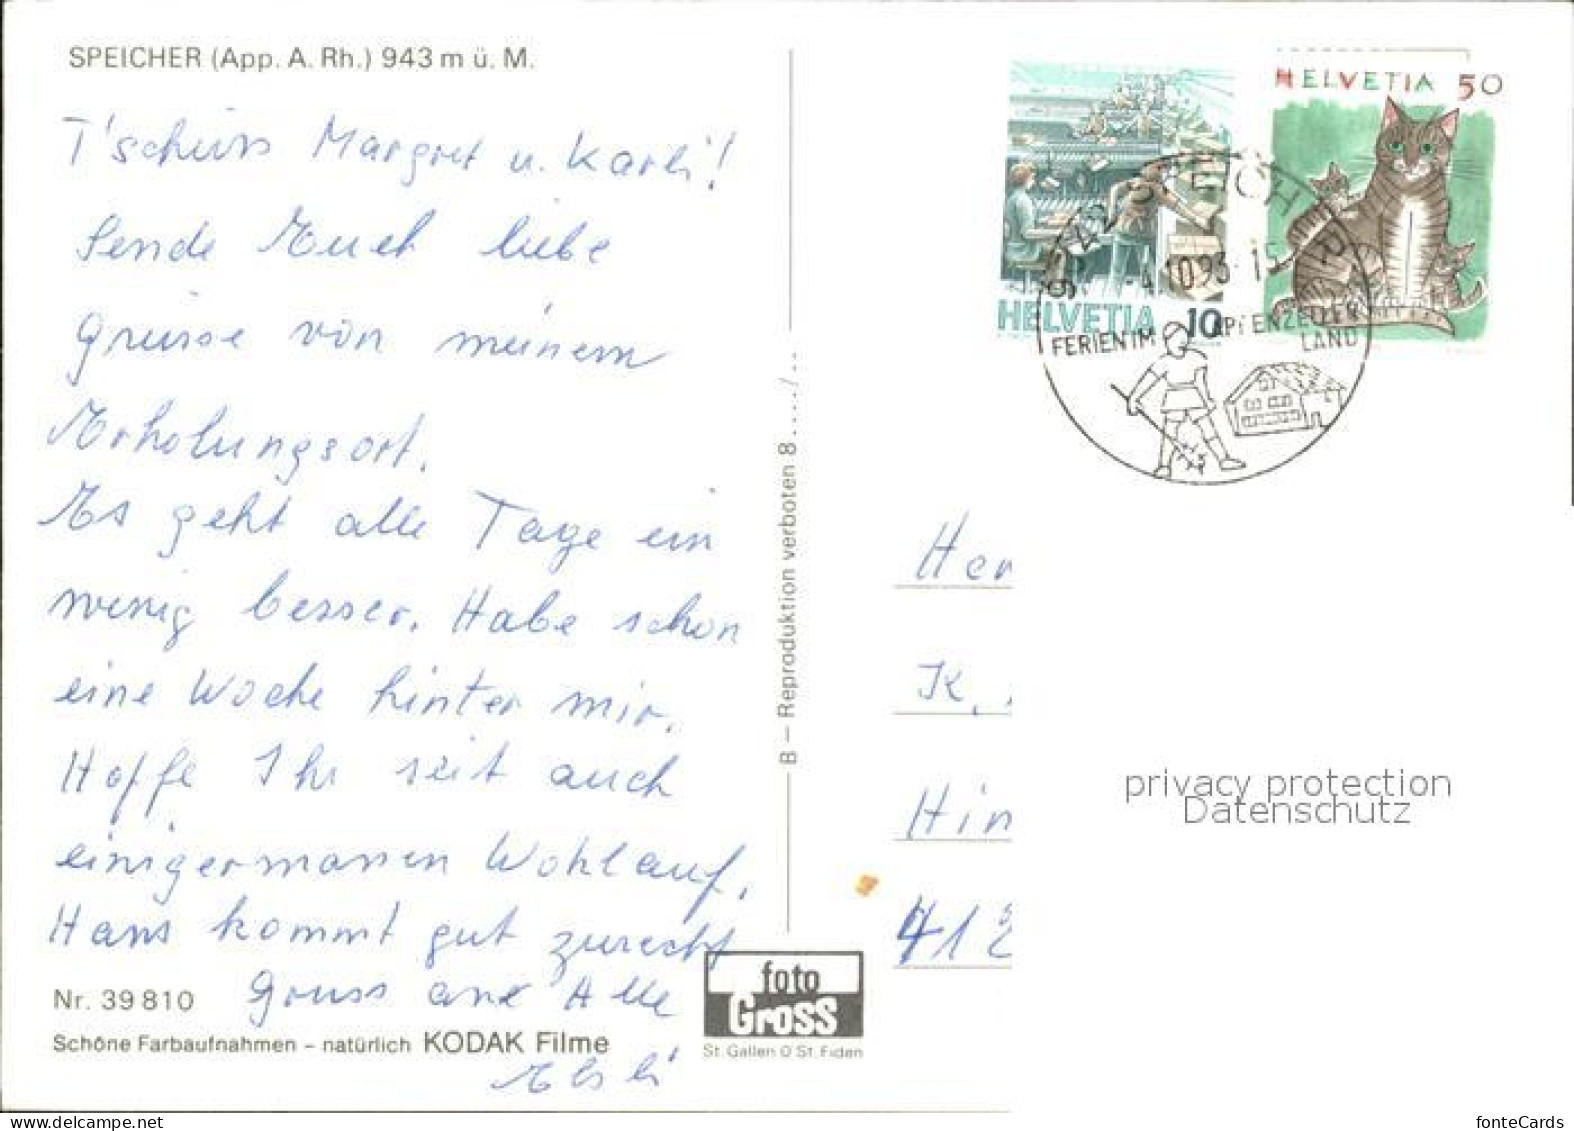 SPEICHER (App. A. Rh.) 943 m ü. M.
T'schüss Margret u. Karli!
Sende Euch liebe
Grüsse von meinem
Erholungsort.
Es geht alle Tage ein
wenig besser. Habe schon
eine Woche hinter mir.
Hoffe Ihr seit auch
einigermassen Wohlauf.
Hans kommt gut zurecht
Gruss an Alle
Elsli
Nr. 39 810
Schöne Farbaufnahmen – natürlich KODAK Filme
B – Reproduktion verboten 8..../..
foto
Gross
St. Gallen O St. Fiden
HELVETIA 10
HELVETIA 50
9042 SPEICHER
4.10.93-15
FERIEN IM APPENZELLER
LAND
Her
K.
Hin
412
privacy protection
Datenschutz
fonteCards